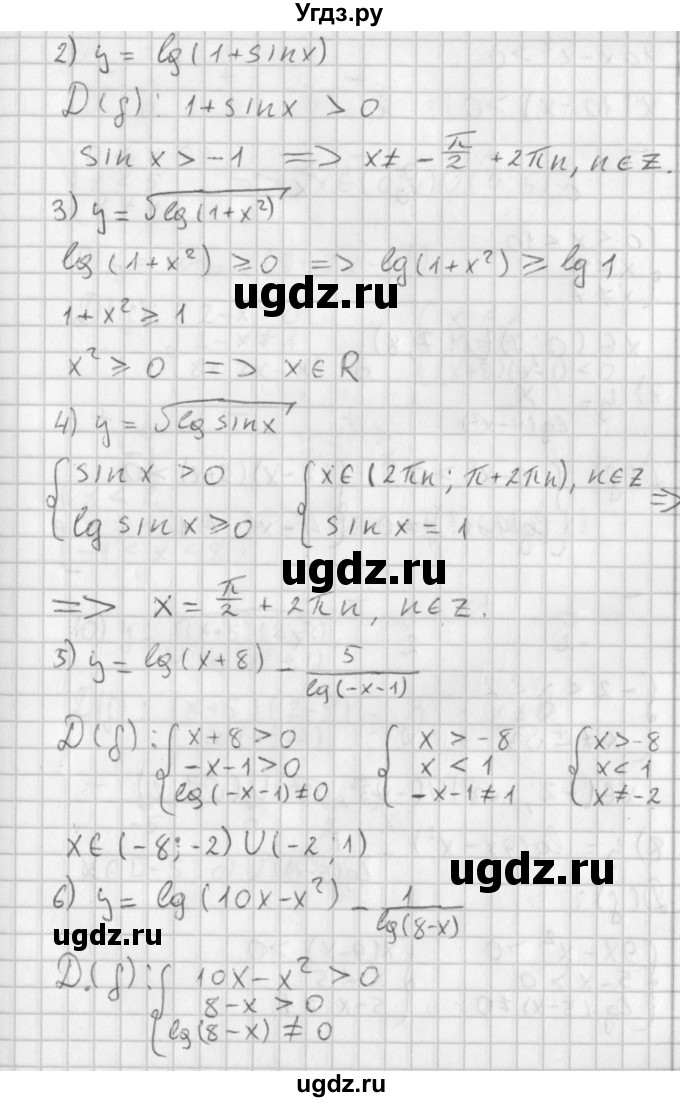 Угдз.ру
2) y = lg(1+sinx)
D(y): 1+sinx > 0
sin x > -1 => x ≠ -π/2 + 2πn, n∈Z.
3) y = √lg(1+x²)
lg(1+x²) ≥ 0 => lg(1+x²) ≥ lg 1
ugdz.ru
1+x² ≥ 1
x² ≥ 0 => x∈R
4) y = √lg sinx
{ sinx > 0 { x∈(2πn; π+2πn), n∈Z =>
{ lg sin x ≥ 0 { sin x = 1
ugdz.ru
=> x = π/2 + 2πn, n∈Z.
5) y = lg(x+8) - 5/lg(-x-1)
D(y): { x+8 > 0 { x > -8 { x > -8
{ -x-1 > 0 { x < 1 { x < 1
{ lg(-x-1) ≠ 0 { -x-1 ≠ 1 { x ≠ -2
x∈(-8; -2) ∪ (-2; 1)
ugdz.ru
6) y = lg(10x-x²) - 1/lg(8-x)
ugdz.ru
D(y): { 10x-x² > 0
{ 8-x > 0
{ lg(8-x) ≠ 0
ugdz.ru